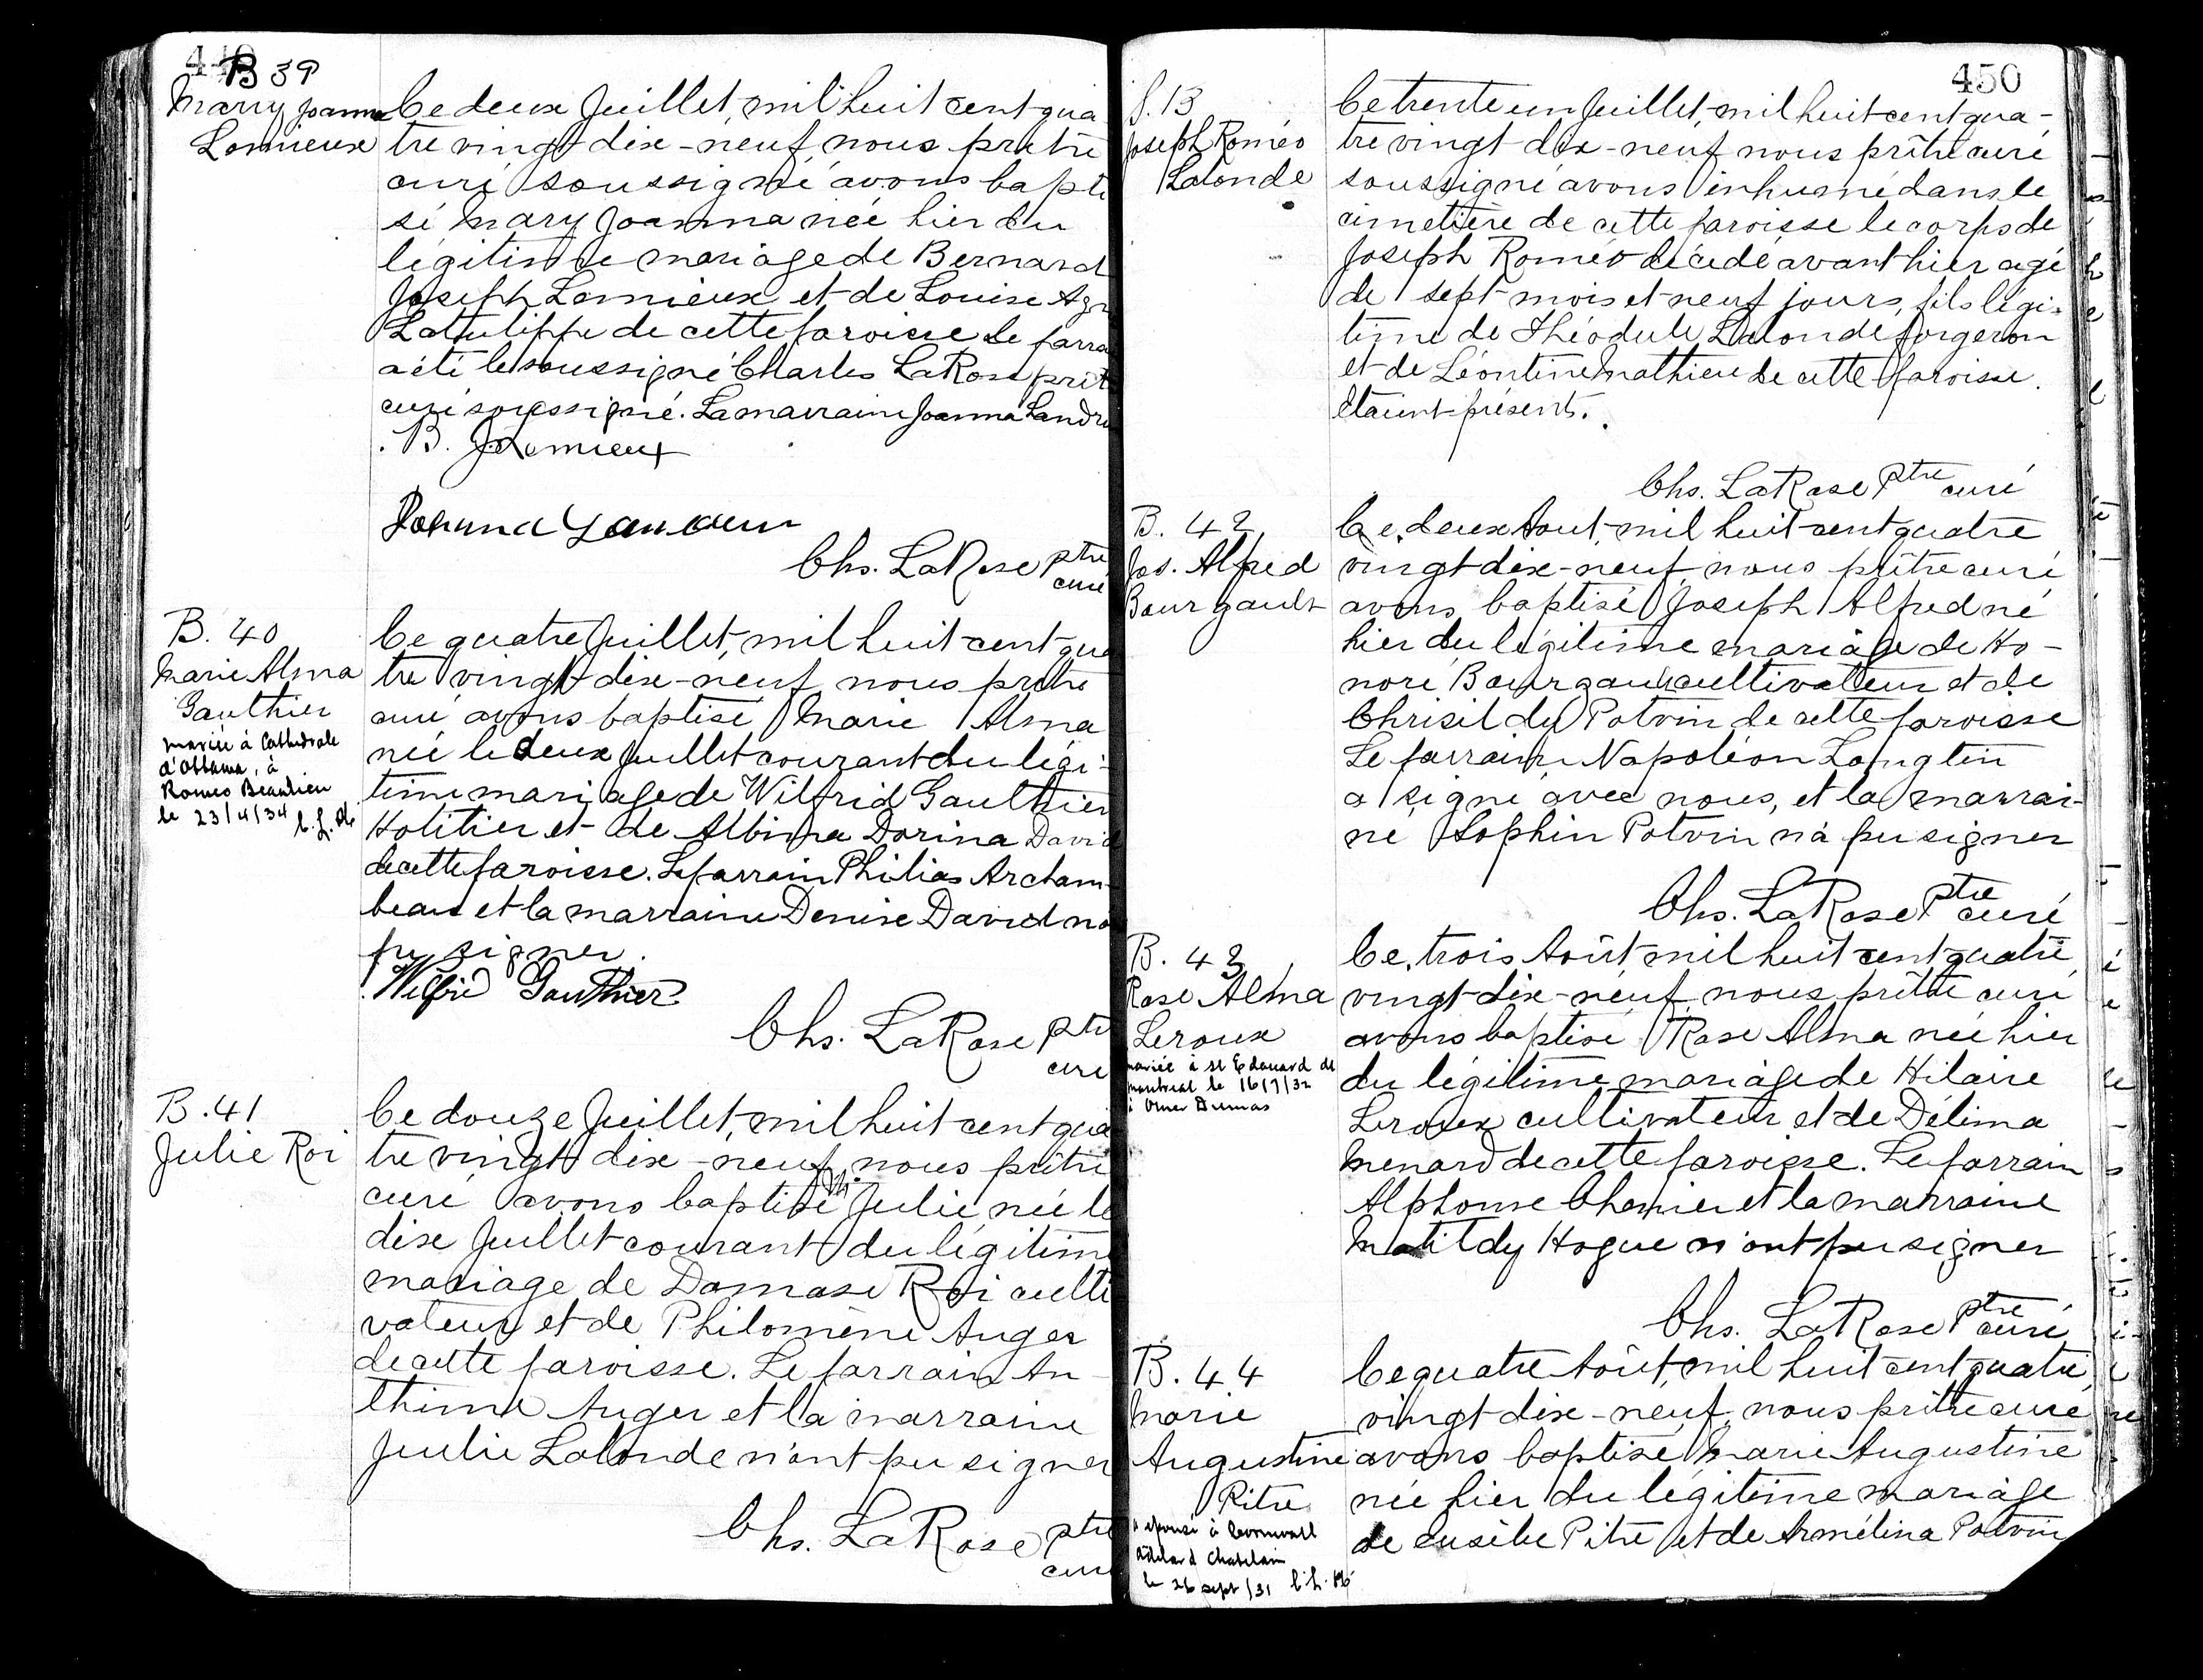 449
B 39
Marry Joanna
Lemieux
Ce deux Juillet, mil huit cent qua
tre vingt dix-neuf, nous prêtre
curé soussigné avons bapti
sé Mary Joanna née hier du
légitime mariage de Bernard
Joseph Lemieux et de Louise
Latulippe de cette paroisse Le parra
a été le soussigné Charles LaRose prêt
curé soussigné. La marraine Joanna Landri
B. J. Lemieux
Chs. LaRose Ptre
curé
B. 40
Marie Alma
Gauthier
mariée à Cathédrale
d'Ottawa, à
Romeo Beaulieu
le 23/4/34
Ce quatre Juillet, mil huit cent qua
tre vingt dix-neuf nous prêtre
curé avons baptisé Marie Alma
née le deux Juillet courant du légi-
time mariage de Wilfrid Gauthier
Hotitier et de Albina Dorina David
de cette paroisse. Le parrain Philias Archam-
beau et la marraine Denise David no
pu signer.
Wilfrid Gauthier
Chs. LaRose Ptre
curé
B. 41
Julie Roi
Ce douze Juillet, mil huit cent qua
tre vingt dix-neuf, nous prêtre
curé avons baptisé M. Julie née le
dix Juillet courant du légitime
mariage de Damase Roi culti
vateur et de Philomène Auger
de cette paroisse. Le parrain An-
thime Auger et la marraine
Julie Lalonde n'ont pu signer
Chs. LaRose ptre
curé
450
S. 13
Joseph Roméo
Lalonde
Ce trente un Juillet, mil huit cent qua-
tre vingt dix-neuf nous prêtre curé
soussigné avons inhumé dans le
cimetière de cette paroisse le corps de
Joseph Roméo décédé avant hier agé
de sept mois et neuf jours, fils légi-
time de Théodule Lalonde forgeron
et de Léontine Mathieu de cette paroisse.
Etaient présents.
Chs. LaRose Ptre curé
B. 42
Jos. Alfred
Bourgault
Ce deux Aout, mil huit cent quatre
vingt dix-neuf, nous prêtre curé
avons baptisé Joseph Alfred né
hier du légitime mariage de Ho-
noré Bourgault cultivateur et de
Chrisildy Potvin de cette paroisse
Le parrain Napoléon Longtin
a signé avec nous, et la marrai-
ne Sophin Potvin n'a pu signer
Chs. LaRose Ptre curé
B. 43
Rose Alma
Leroux
mariée à St Edouard de
Montreal le 16/7/32
à Omer Dumas
Ce trois Août, mil huit cent quatre
vingt dix-neuf, nous prêtre curé
avons baptisé Rose Alma née hier
du légitime mariage de Hilaire
Leroux cultivateur et de Délima
Menard de cette paroisse. Le parrain
Alphonse Chenier et la marraine
Matildy Hogue n'ont pu signer
Chs. LaRose Ptre curé
B. 44
Marie
Augustine
Pitre
a épousé à Cornwall
Adélard Chatelain
le 26 sept/31
Ce quatre Août, mil huit cent quatre
vingt dix-neuf, nous prêtre curé
avons baptisé Marie Augustine
née hier du légitime mariage
de Eusèbe Pitre et de Armélina Potvin